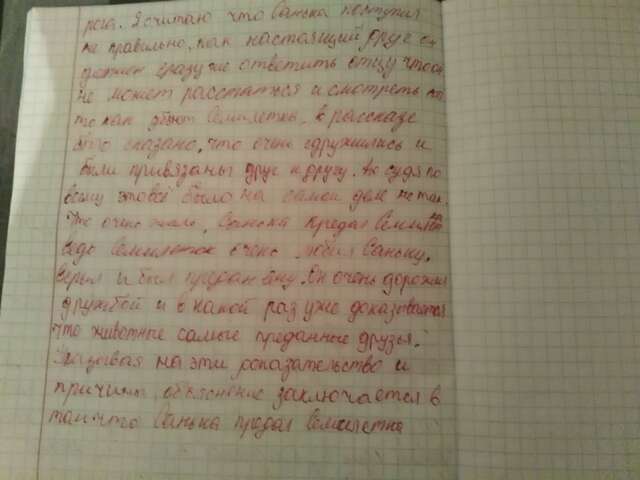 рога. Я считаю что Санька поступил
не правильно, как настоящий друг он
должен сразу же ответить отцу что он
не может расстаться и смотреть на
то как убьют Семилетка, в рассказе
было сказано, что очень сдружились и
были привязаны друг к другу. Но судя по
всему это всё было на самом деле не так.
Что очень жаль, Санька предал Семилетка
ведь Семилеток очень любил Саньку,
верил и был предан ему. Он очень дорожил
дружбой и в какой раз уже доказывается
что животные самые преданные друзья.
Указывая на эти доказательство и
причины, объяснение заключается в
том что Санька предал Семилетка